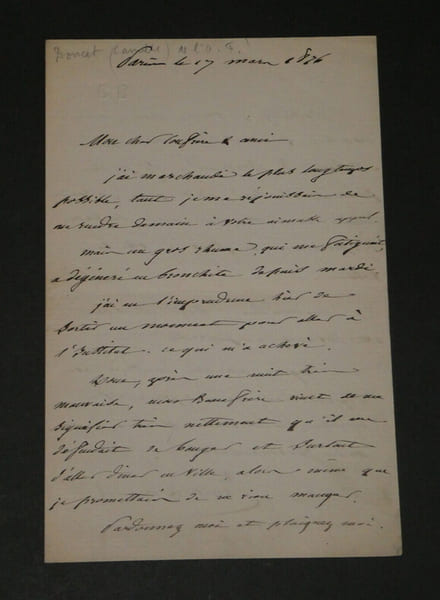 Doucet (Camille) de l'A. F.
Paris le 17 mars 1876
Mon cher Confrère & ami
j'ai marchandé le plus longtemps
possible, tant je me réjouissais de
me rendre demain à votre aimable appel
mais un gros rhume, qui me fatiguait,
a dégénéré en bronchite depuis mardi.
j'ai eu l'imprudence hier de
sortir un moment pour aller à
l'Institut. ce qui m'a achevé.
après une nuit très
mauvaise, mon Beau frère vient de me
signifier très nettement qu'il me
défendait de bouger et surtout
d'aller diner en ville, alors même que
je promettais de ne rien manger.
Pardonnez moi et plaignez moi.